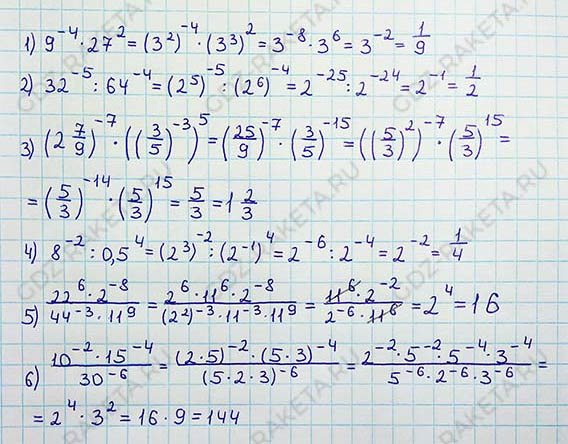 1) 9^-4 · 27^2 = (3^2)^-4 · (3^3)^2 = 3^-8 · 3^6 = 3^-2 = 1/9
2) 32^-5 : 64^-4 = (2^5)^-5 : (2^6)^-4 = 2^-25 : 2^-24 = 2^-1 = 1/2
3) (2 7/9)^-7 · ((3/5)^-3)^5 = (25/9)^-7 · (3/5)^-15 = ((5/3)^2)^-7 · (5/3)^15 =
= (5/3)^-14 · (5/3)^15 = 5/3 = 1 2/3
4) 8^-2 : 0,5^4 = (2^3)^-2 : (2^-1)^4 = 2^-6 : 2^-4 = 2^-2 = 1/4
5) (22^6 · 2^-8)/(44^-3 · 11^9) = (2^6 · 11^6 · 2^-8)/((2^2)^-3 · 11^-3 · 11^9) = (11^6 · 2^-2)/(2^-6 · 11^6) = 2^4 = 16
6) (10^-2 · 15^-4)/(30^-6) = ((2 · 5)^-2 · (5 · 3)^-4)/((5 · 2 · 3)^-6) = (2^-2 · 5^-2 · 5^-4 · 3^-4)/(5^-6 · 2^-6 · 3^-6) =
= 2^4 · 3^2 = 16 · 9 = 144
GDZ-RAKETA.RU